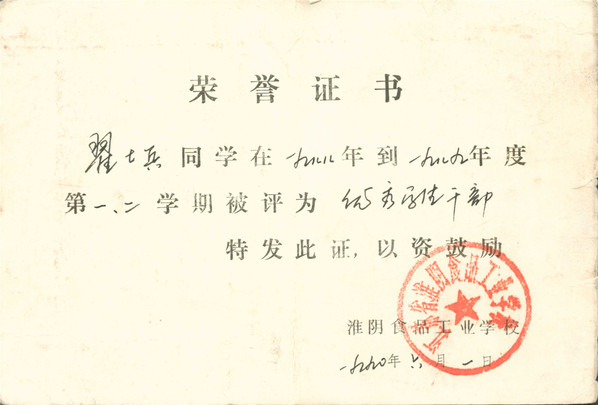 荣誉证书
翟士兵同学在一九八八年到一九八九年度
第一、二学期被评为优秀学生干部
特发此证，以资鼓励
江苏省淮阴食品工业学校
淮阴食品工业学校
一九九〇年六月一日